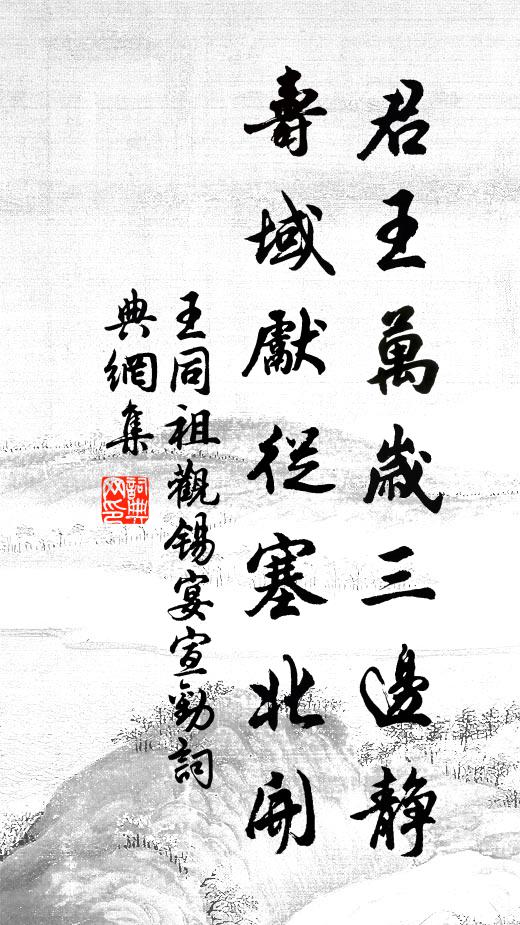 君王萬歲三邊靜
壽域獻從塞北開
王同祖觀錫宴宣勸詞
典網集
詞典
网印